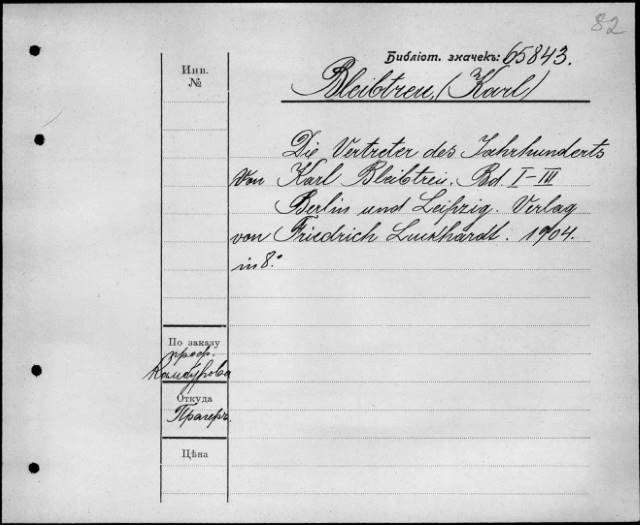 82
Библіот. значекъ: 65843.
Инв.
№
Bleibtreu, (Karl)
Die Vertreter des Jahrhunderts
von Karl Bleibtreu. Bd. I-III
Berlin und Leipzig. Verlag
von Friedrich Luckhardt. 1904.
in 8.°
По заказу
проф.
Камбурова
Откуда
Прагеръ.
Цѣна